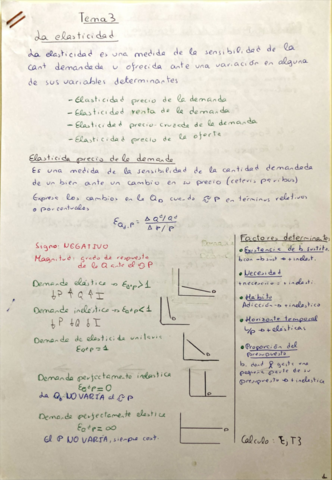 Tema 3
La elasticidad
La elasticidad es una medida de la sensibilidad de la
cant demandada u ofrecida ante una variación en alguna
de sus variables determinantes
- Elasticidad precio de la demanda
- Elasticidad renta de la demanda
- Elasticidad precio cruzada de la demanda
- Elasticidad precio de la oferta
Elasticidad precio de la demanda
Es una medida de la sensibilidad de la cantidad demandada
de un bien ante un cambio en su precio (ceteris paribus)
Expresa los cambios en la QD cuando P en términos relativos
o porcentuales
Signo: NEGATIVO
Magnitud: grado de respuesta
de la Q ante el P
Demanda elástica
Demanda inelástica
Demanda de elasticidad unitaria
Demanda perfectamente inelástica
La Qd NO VARIA el P
Demanda perfectamente elástica
El P NO VARIA, siempre cost.
Factores determina
• Existencia de b. sustit.
• Necesidad
• Hábito
Adicción → + inelásti
• Horizonte temporal
l/p → + elásticas
• Proporción del
presupuesto
presupuesto → + inelástica
Calculo: E, T3